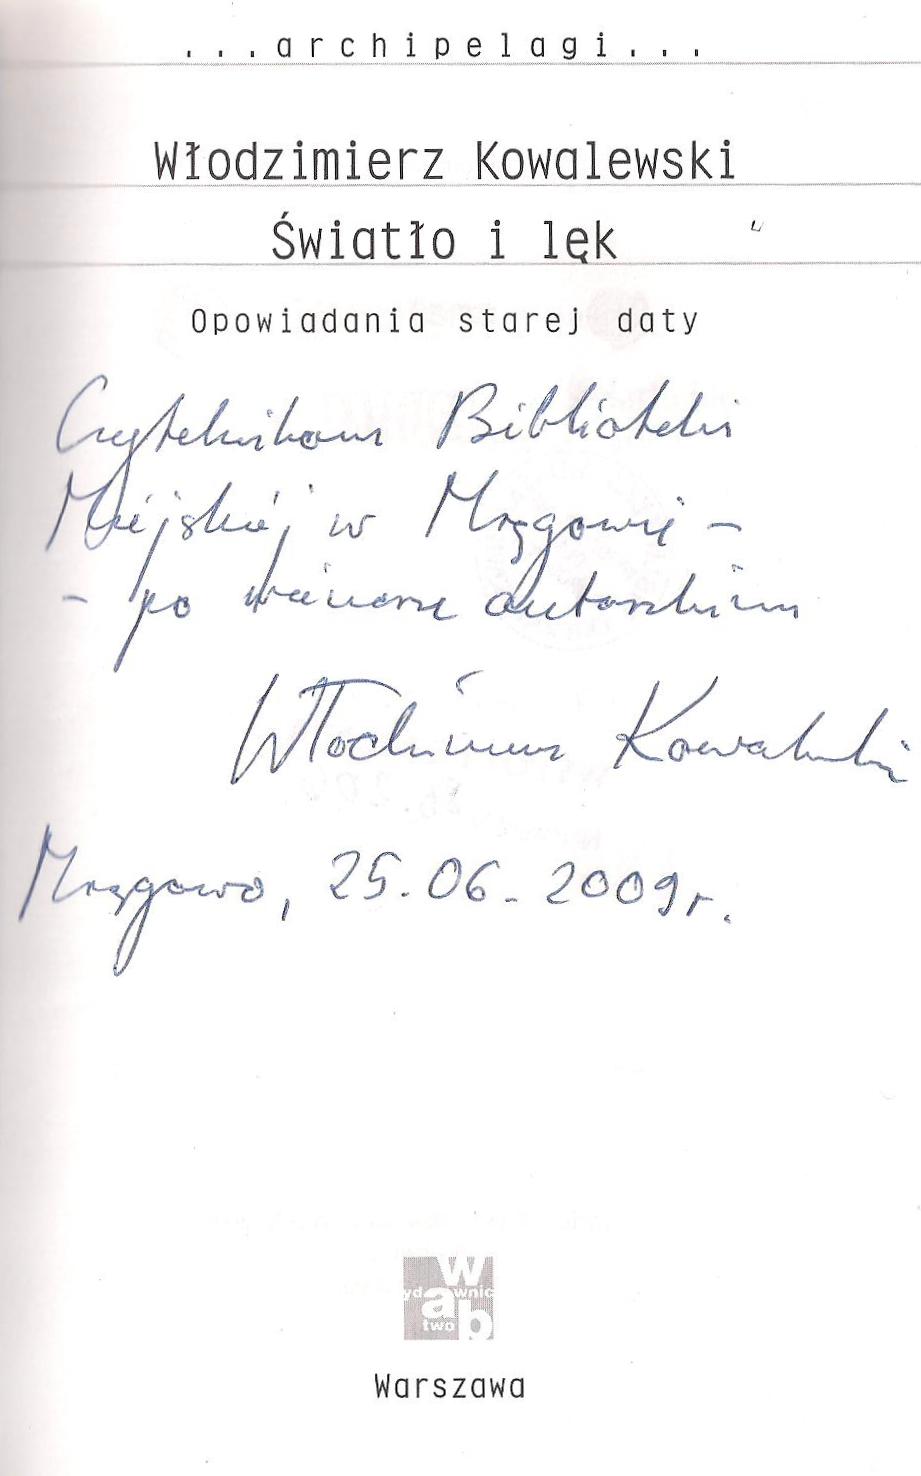 ...archipelagi...
Włodzimierz Kowalewski
Światło i lęk
Opowiadania starej daty
Czytelnikom Biblioteki
Miejskiej w Mrągowie –
– po wieczorze autorskim
Włodzimierz Kowalewski
Mrągowo, 25.06.2009r.
w
ydawnic
a
two b
Warszawa